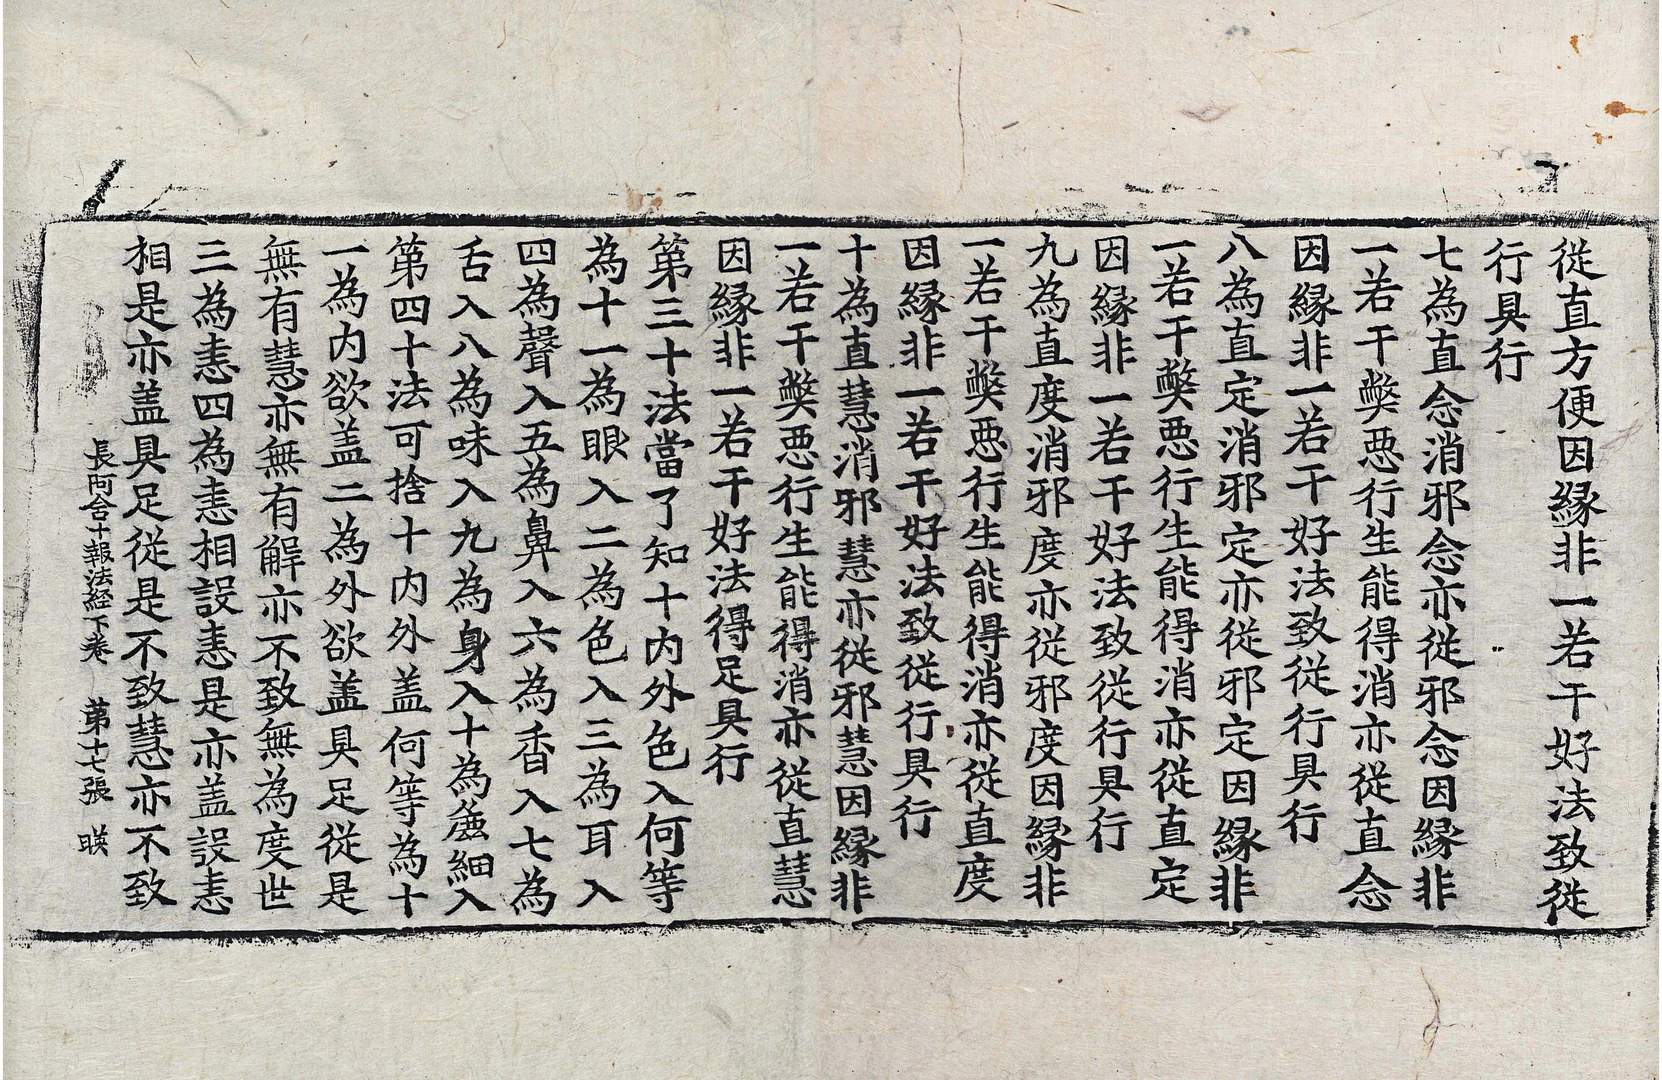 從直方便因縁非一若干好法致從
行具行
七為直念消邪念亦從邪念因縁非
一若干獘惡行生能得消亦從直念
因縁非一若干好法致從行具行
八為直定消邪定亦從邪定因縁非
一若干獘惡行生能得消亦從直定
因縁非一若干好法致從行具行
九為直度消邪度亦從邪度因縁非
一若干獘惡行生能得消亦從直度
因縁非一若干好法致從行具行
十為直慧消邪慧亦從邪慧因縁非
一若干獘惡行生能得消亦從直慧
因縁非一若干好法得足具行
第三十法當了知十内外色入何等
為十一為眼入二為色入三為耳入
四為聲入五為鼻入六為香入七為
舌入八為味入九為身入十為麁細入
第四十法可捨十内外盖何等為十
一為内欲盖二為外欲盖具足從是
無有慧亦無有解亦不致無為度世
三為恚四為恚相設恚是亦盖設恚
相是亦盖具足從是不致慧亦不致
長阿含十報法経下卷 第十七張 暎